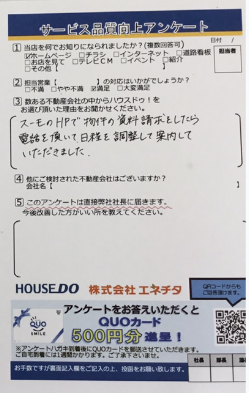 サービス品質向上アンケート
1 当店を何でお知りになられましたか？(複数回答可)
☑ホームページ □チラシ □インターネット □道路看板
□お店を見て □テレビCM □イベント □紹介
□その他【 】
担当者
2 担当営業【 】の対応はいかがでしょうか？
□不満 □やや不満 ☑満足 □大変満足
3 数ある不動産会社の中からハウスドゥ！を
お選び頂いた理由をお聞かせください。
スーモのHPで物件の資料請求をしたら
電話を頂いて日程を調整して案内して
いただきました。
4 他にご検討された不動産会社はございますか？
会社名【 】
5 このアンケートは直接弊社社長に届きます。
今後改善した方がいい所を教えてください。
HOUSE DO 株式会社 エネチタ
QRコードからも
ご回答頂けます。
アンケートをお答えいただくと
QUOカード
500円分 進呈！
QUO
SMILE
※アンケートハガキ到着後にQUOカードを郵送させていただきます。
ご自宅到着には1週間かかります。ご了承下さいませ。
お手数ですが裏面記入欄をご記入の上、投函をお願い致します。
社長 部長